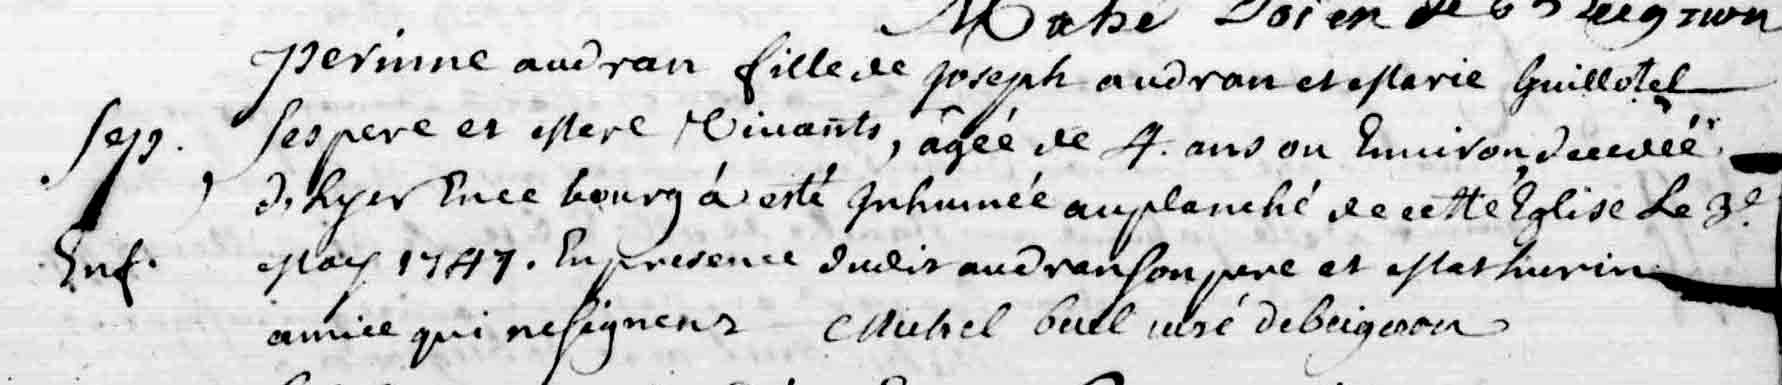 Mahé
perinne audran fille de joseph audran et Marie Guillotel
Sep. Ses pere et Mere Vivants, âgéé de 4. ans ou Environ, decedéé
d'hyer En ce bourg á esté Inhumée au planché de cette Eglise Le 3e.
Enf. May 1747. En presence dudit audran son pere et Mathurin
amice qui ne signent Michel curé de beignon